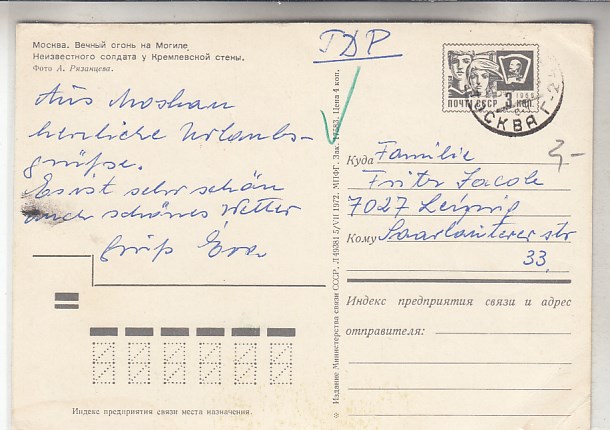 Москва. Вечный огонь на Могиле
Неизвестного солдата у Кремлевской стены.
Фото А. Рязанцева.
Aus Moskau
herrliche Urlaubs-
grüße.
Es ist sehr schön
und schönes Wetter
Gruß Eva
Индекс предприятия связи места назначения.
Издание Министерства связи СССР. 5/VII 1972. МПФГ. Зак. Цена 4 коп.
ГДР
ПОЧТА СССР 3 КОП.
1966
МОСКВА
3,-
Куда Familie
Fritz Jacob
7027 Leipzig
Кому Saarlauterer str
33
Индекс предприятия связи и адрес
отправителя: